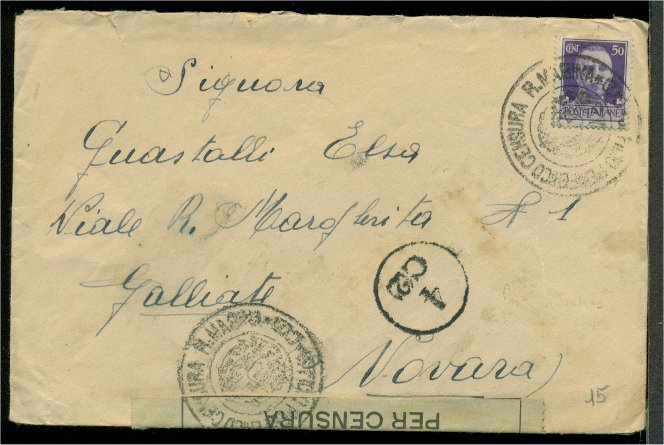 CENT. 50
POSTE ITALIANE
R. MARINA
CENSURA
Signora
Guastalli Elsa
Viale R. Margherita N 1
Galliate
Novara
4
R. MARINA
CENSURA
PER CENSURA
15